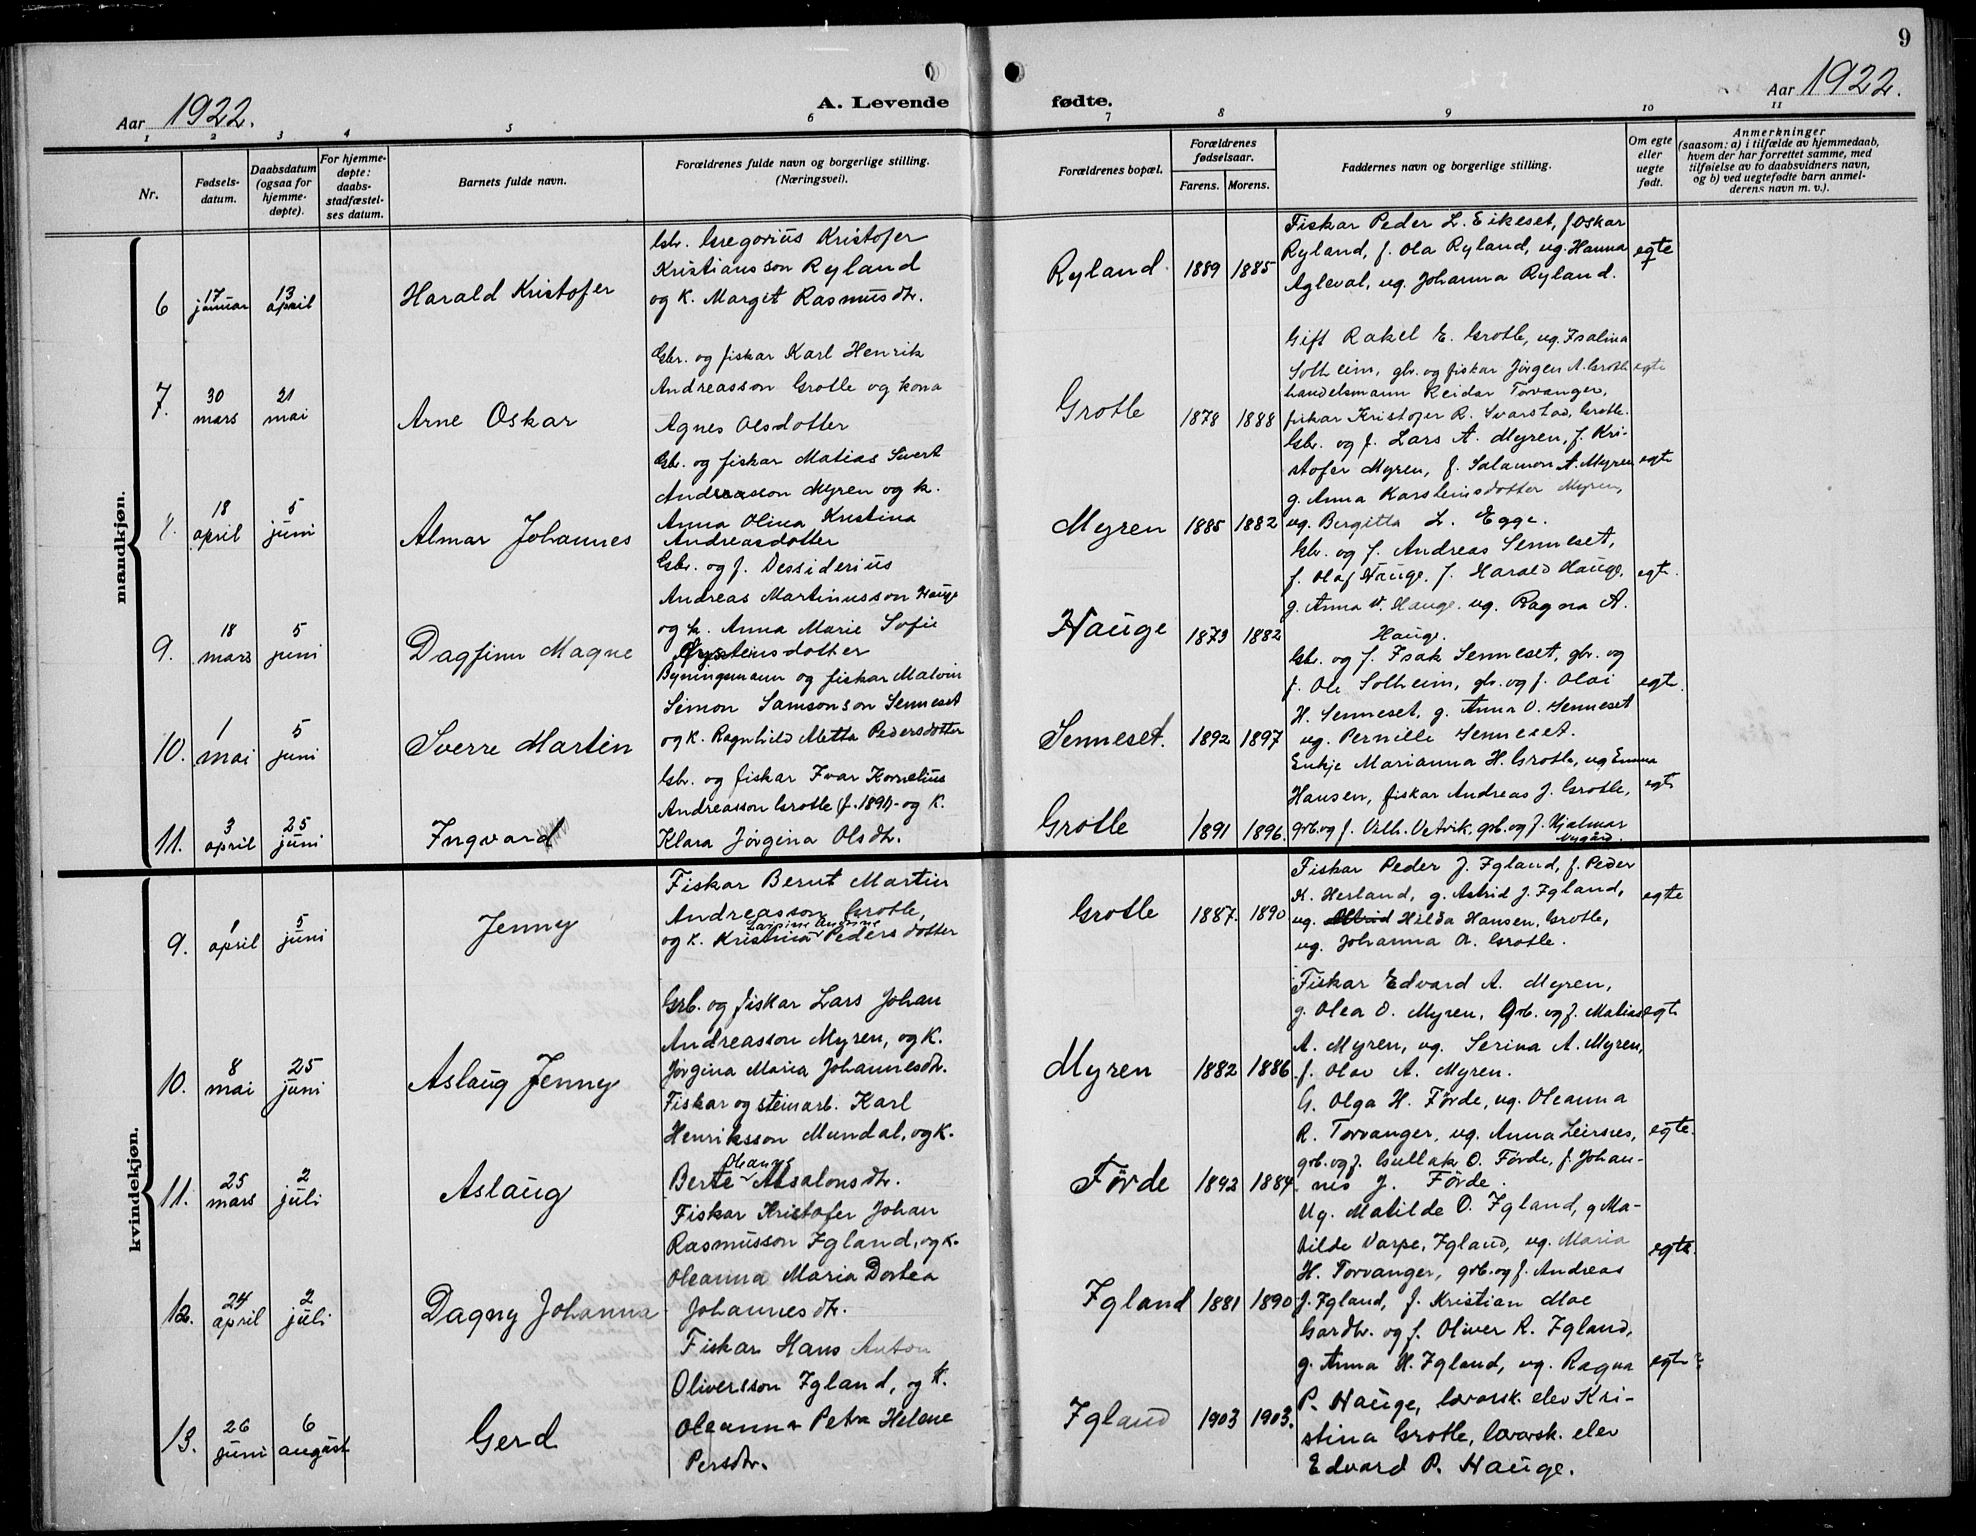 9
Aar 1922.
A. Levende fødte.
Aar 1922.
1 2 3 4 5 6 7 8 9 10 11
Nr.
Fødsels-
datum.
Daabsdatum
(ogsaa for
hjemme-
døpte).
For hjemme-
døpte:
daabs-
stadfæstel-
ses datum.
Barnets fulde navn.
Forældrenes fulde navn og borgerlige stilling.
(Næringsvei).
Forældrenes bopæl.
Forældrenes
fødselsaar.
Farens. Morens.
Faddernes navn og borgerlige stilling.
Om egte
eller
uegte
født.
Anmerkninger
(saasom: a) i tilfælde av hjemmedaab,
hvem der har forrettet samme, med
tilføielse av to daabsvidners navn,
og b) ved uegtefødte barn anmel-
derens navn m. v.).
mandkjøn.
6
17
januar
13
april
Harald Kristofer
Gbr. Gregorius Kristofer
Kristiansson Ryland
og K. Margit Rasmusdtr.
Ryland. 1889 1885
Fiskar Peder L. Eikeset, f Oskar
Ryland, f. Ola Ryland, ug. Hanna
Agleval, ug. Johanna Ryland.
egte
7.
30
mars
21
mai
Arne Oskar
Gbr. og fiskar Karl Henrik
Andreasson Grotle og kona
Agnes Olsdotter
Grotle 1878 1888
Gift Rakel E. Grotle, ug. Isalina
Solheim, gbr. og fiskar Jørgen A. Grotle
handelsmann Reidar Torvanger,
fiskar Kristofer R. Svarstad, Grotle.
egte
8.
18
april
5
juni
Almar Johannes
Gbr. og fiskar Matias Sivert
Andreasson Myren og k.
Anna Olina Kristina
Andreasdotter
Myren 1885 1882
Gbr. og f. Lars A. Myren, f. Kri-
stofer Myren, f. Salamon A. Myren
g. Anna Karsteinsdotter Myren,
ug. Bergitta L. Egge.
egte
9.
18
mars
5
juni
Dagfinn Magne
Gbr. og f. Dessiderius
Andreas Martinusson Hauge
og k. Anna Marie Sofie
Øysteinsdotter
Hauge 1879 1882
Gbr. og f. Andreas Senneset,
f. Olaf Hauge, f. Harald Hauge,
g. Anna V. Hauge. ug. Ragna A.
Hauge.
egt.
10.
1
mai
5
juni
Sverre Martin
Byningsmann og fiskar Malvin
Simon Samsonson Senneset
og K. Ragnhild Metta Pedersdotter
Senneset. 1892 1897
Gbr. og f. Isak Senneset, gbr. og
f. Ole Solheim, gbr. og f. Olai
H. Senneset, g. Anna O. Senneset
ug. Pernille Senneset.
egt.
11.
3
april
25
juni
Ingvard
Gbr. og fiskar Ivar Kornelius
Andreasson Grotle (f. 1891) og K.
Klara Jørgina Olsdtr.
Grotle 1891 1896.
Enkje Marianna H. Grotle, ug Emma
Hansen, fiskar Andreas J. Grotle,
grb. og f. Vilh. Vetvik, grb. og f. Hjalmar
Nygård.
egt
kvindekjøn.
9.
1
april
5
juni
Jenny
Fiskar Bernt Martin
Andreasson Grotle,
og K. Kristina Pedersdotter
Grotle 1887. 1890
Fiskar Peder J. Igland, f. Peder
K. Herland, g. Astrid J. Igland,
ug. Hilda Hansen, Grotle,
ug. Johanna A. Grotle.
egte
10.
8
mai
25
juni
Aslaug Jenny
Grb. og fiskar Lars Johan
Andreasson Myren, og K.
Jørgina Maria Johannesdtr.
Myren 1882 1886.
Fiskar Edvard A. Myren,
g. Olea O. Myren, grb. og f. Matias
A. Myren, ug. Serina A. Myren,
f. Olav A. Myren.
egt
11.
25
mars
2
juli
Aslaug
Fiskar og steinarb. Karl
Henriksson Mundal, og K.
Oleanna
Berte Absalonsdtr.
Førde 1892 1884
G. Olga H. Førde, ug. Oleanna
R. Torvanger, ug. Anna Leirsnes,
grb. og f. Gullak O. Førde, f. Johan-
nes J. Førde.
egte.
12.
24
april
2
juli
Dagny Johanna
Fiskar Kristofer Johan
Rasmusson Igland, og K.
Oleanna Maria Dortea
Johannesdtr.
Igland 1881 1890
Ug. Matilde O. Igland, g Ma-
tilde Varpe, Igland, ug. Maria
H. Torvanger, grb. og f. Andreas
J. Igland, f. Kristian Moe
egte.
13.
26
juni
6
august
Gerd
Fiskar Hans Anton
Oliversson Igland, og K.
Oleanna Petra Helene
Persdtr.
Igland 1903 1903.
Gardbr. og f. Oliver R. Igland,
g. Anna H. Igland, ug. Ragna
P. Hauge, lærarsk. elev Kri-
stina Grotle, lærarsk. elev
Edvard P. Hauge.
egte